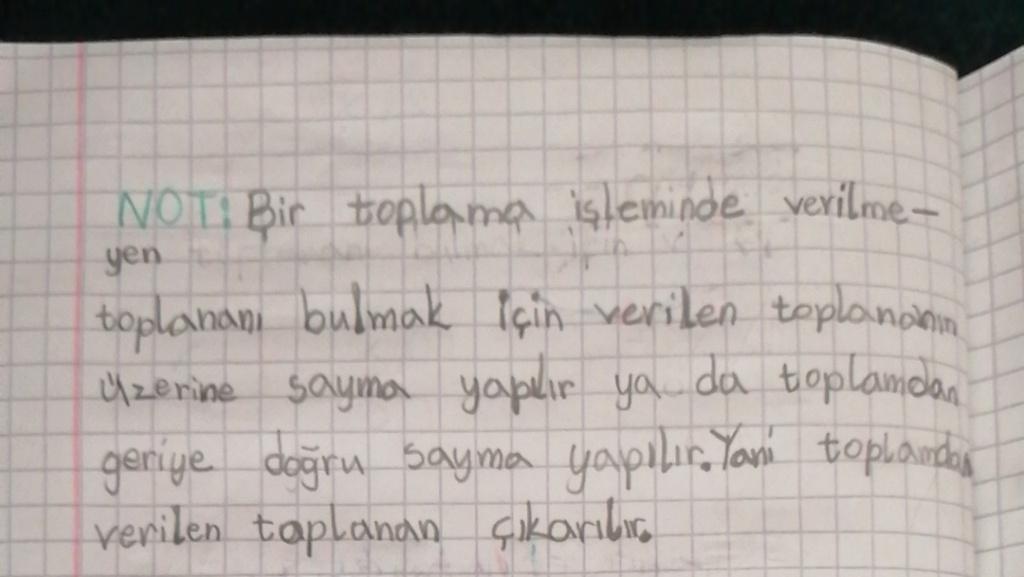 NOT: Bir toplama işleminde verilme-
yen
toplananı bulmak için verilen toplananın
üzerine sayma yapılır ya da toplamdan
geriye doğru sayma yapılır. Yani toplamdan
verilen taplanan çıkarılır.